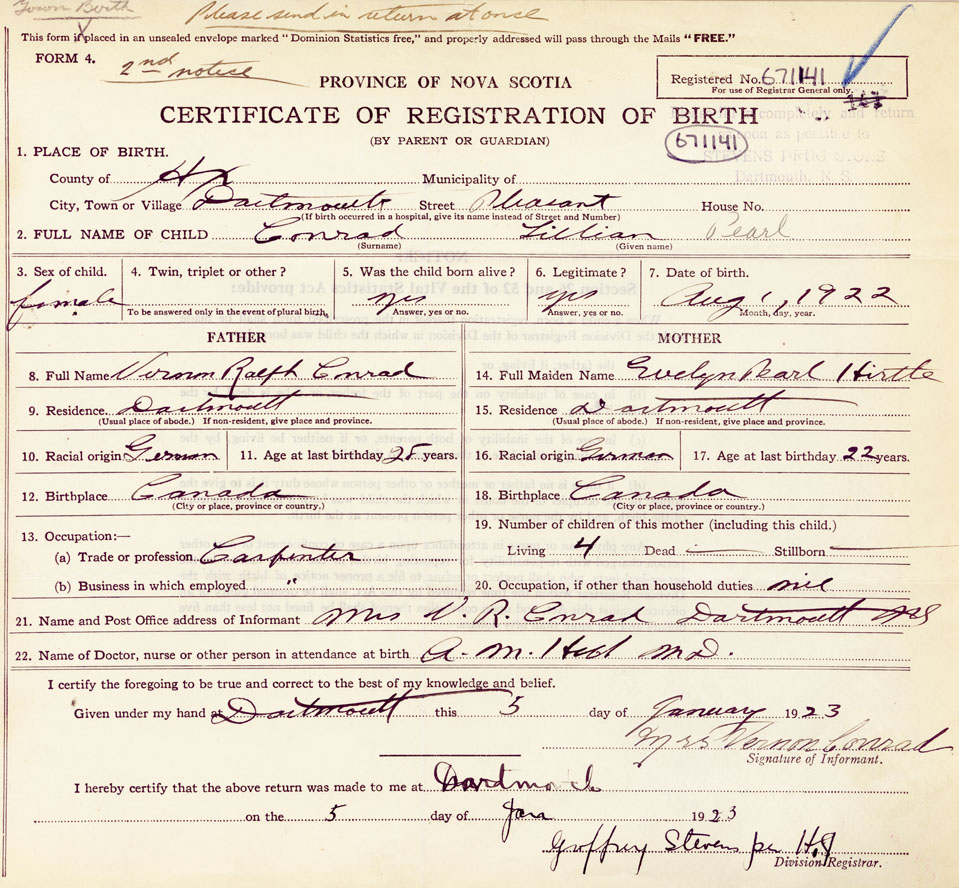 Town Birth
Please send in return at once
This form if placed in an unsealed envelope marked "Dominion Statistics free," and properly addressed will pass through the Mails "FREE."
FORM 4.
2nd notice
PROVINCE OF NOVA SCOTIA
Registered No. 671141
For use of Registrar General only.
CERTIFICATE OF REGISTRATION OF BIRTH
completely and return
(BY PARENT OR GUARDIAN)
671141
soon as possible to
STEVENS DRUG STORE
Dartmouth, N. S.
1. PLACE OF BIRTH.
County of Hx Municipality of
City, Town or Village Dartmouth Street Pleasant House No.
(If birth occurred in a hospital, give its name instead of Street and Number)
2. FULL NAME OF CHILD Conrad Lillian Pearl
(Surname) (Given name)
3. Sex of child. 4. Twin, triplet or other? 5. Was the child born alive? 6. Legitimate? 7. Date of birth.
female yes yes Aug 1, 1922
To be answered only in the event of plural birth. Answer, yes or no. Answer, yes or no. Month, day, year.
FATHER MOTHER
8. Full Name Vernon Ralph Conrad 14. Full Maiden Name Evelyn Pearl Hirtle
9. Residence Dartmouth 15. Residence Dartmouth
(Usual place of abode.) If non-resident, give place and province. (Usual place of abode.) If non-resident, give place and province.
10. Racial origin German 11. Age at last birthday 28 years. 16. Racial origin German 17. Age at last birthday 22 years.
12. Birthplace Canada 18. Birthplace Canada
(City or place, province or country.) (City or place, province or country.)
19. Number of children of this mother (including this child.)
13. Occupation:—
Living 4 Dead — Stillborn —
(a) Trade or profession Carpenter
(b) Business in which employed " 20. Occupation, if other than household duties nil
21. Name and Post Office address of Informant Mrs V. R. Conrad Dartmouth NS
22. Name of Doctor, nurse or other person in attendance at birth A. M. MD.
I certify the foregoing to be true and correct to the best of my knowledge and belief.
Given under my hand at Dartmouth this 5 day of January 1923
Mrs Vernon Conrad
Signature of Informant.
I hereby certify that the above return was made to me at Dartmouth
on the 5 day of Jan 1923
Geoffrey Stevens per
Division Registrar.